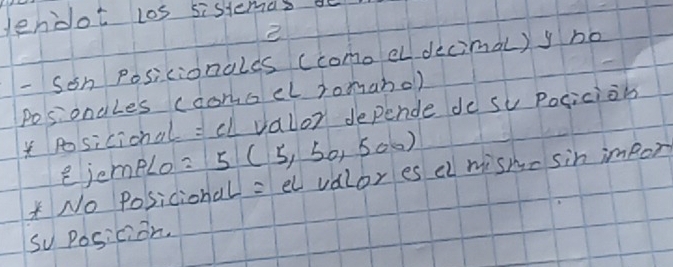 Los sistemas de
2
- Son Posicionales (como el decimal) y no
Posionales (como el romano)
* Posicional = el valor depende de su Posición
Ejemplo = 5 (5, 50, 500)
* No Posicional = el valor es el mismo sin impor
su Posición.